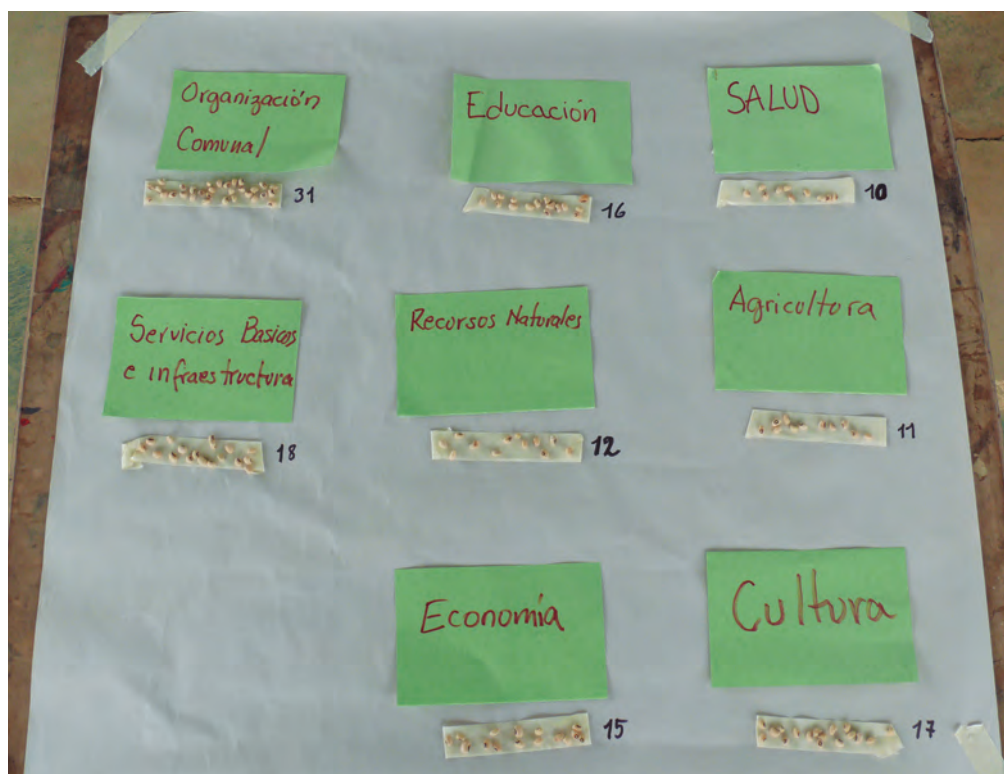 Organización
Comunal
31
Educación
16
SALUD
10
Servicios Basicos
e infraestructura
18
Recursos Naturales
12
Agricultura
11
Economía
15
Cultura
17